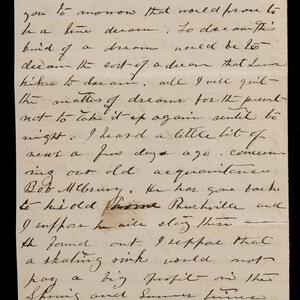 you to morrow that would prove to
be a true dream. To dream this
kind of a dream would be to
dream the sort of a dream that
likes to dream. well I will quit
the matter of dreams for the present
not to take it up again until to
night. I heard a little bit of
news a few days ago. concern
ing our old acquaintance
Bob. He has gone back
to his old home Rushville and
I suppose he will stay there
He found out I suppose that
a skating rink would not
pay a big profit in the
Spring and Summer times